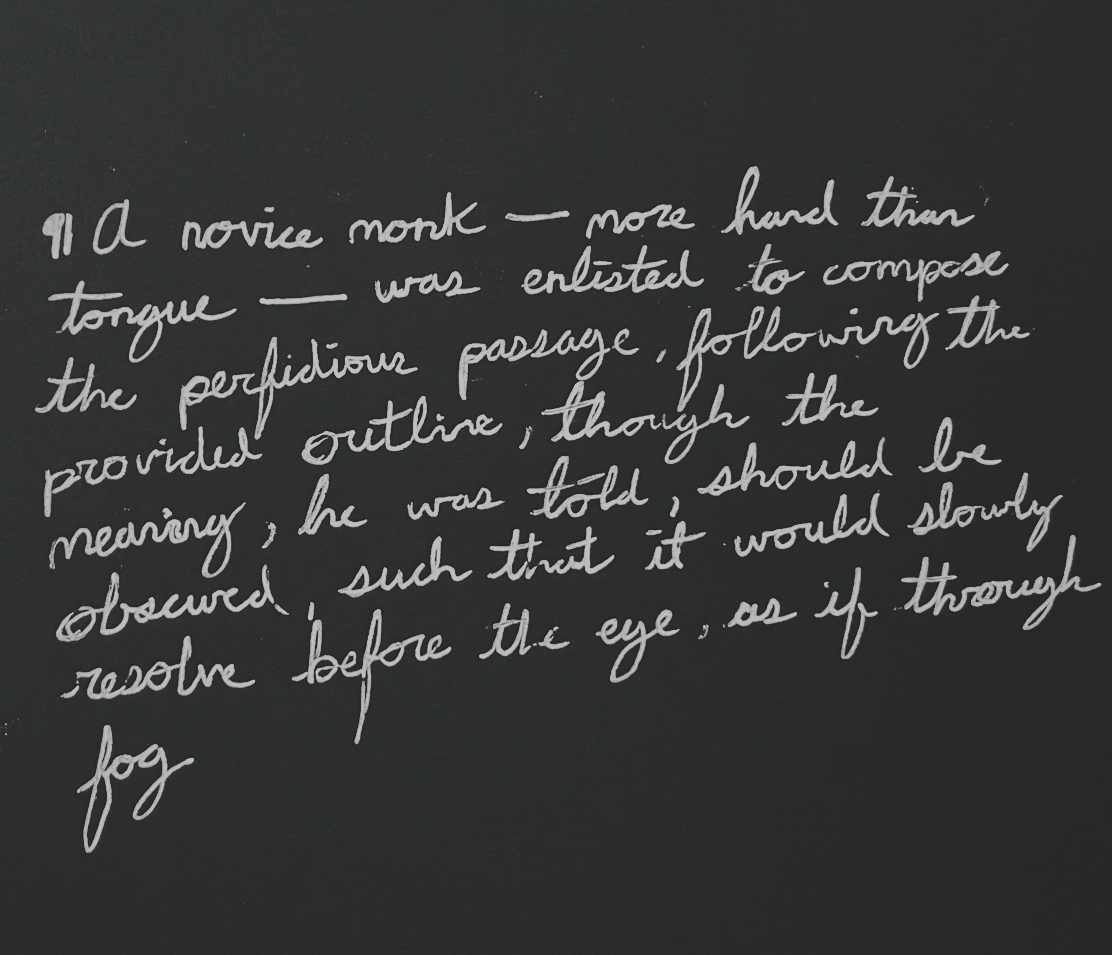 ¶ A novice monk — more hand than
tongue — was enlisted to compose
the perfidious passage, following the
provided outline, though the
meaning, he was told, should be
obscured, such that it would slowly
resolve before the eye, as if through
fog